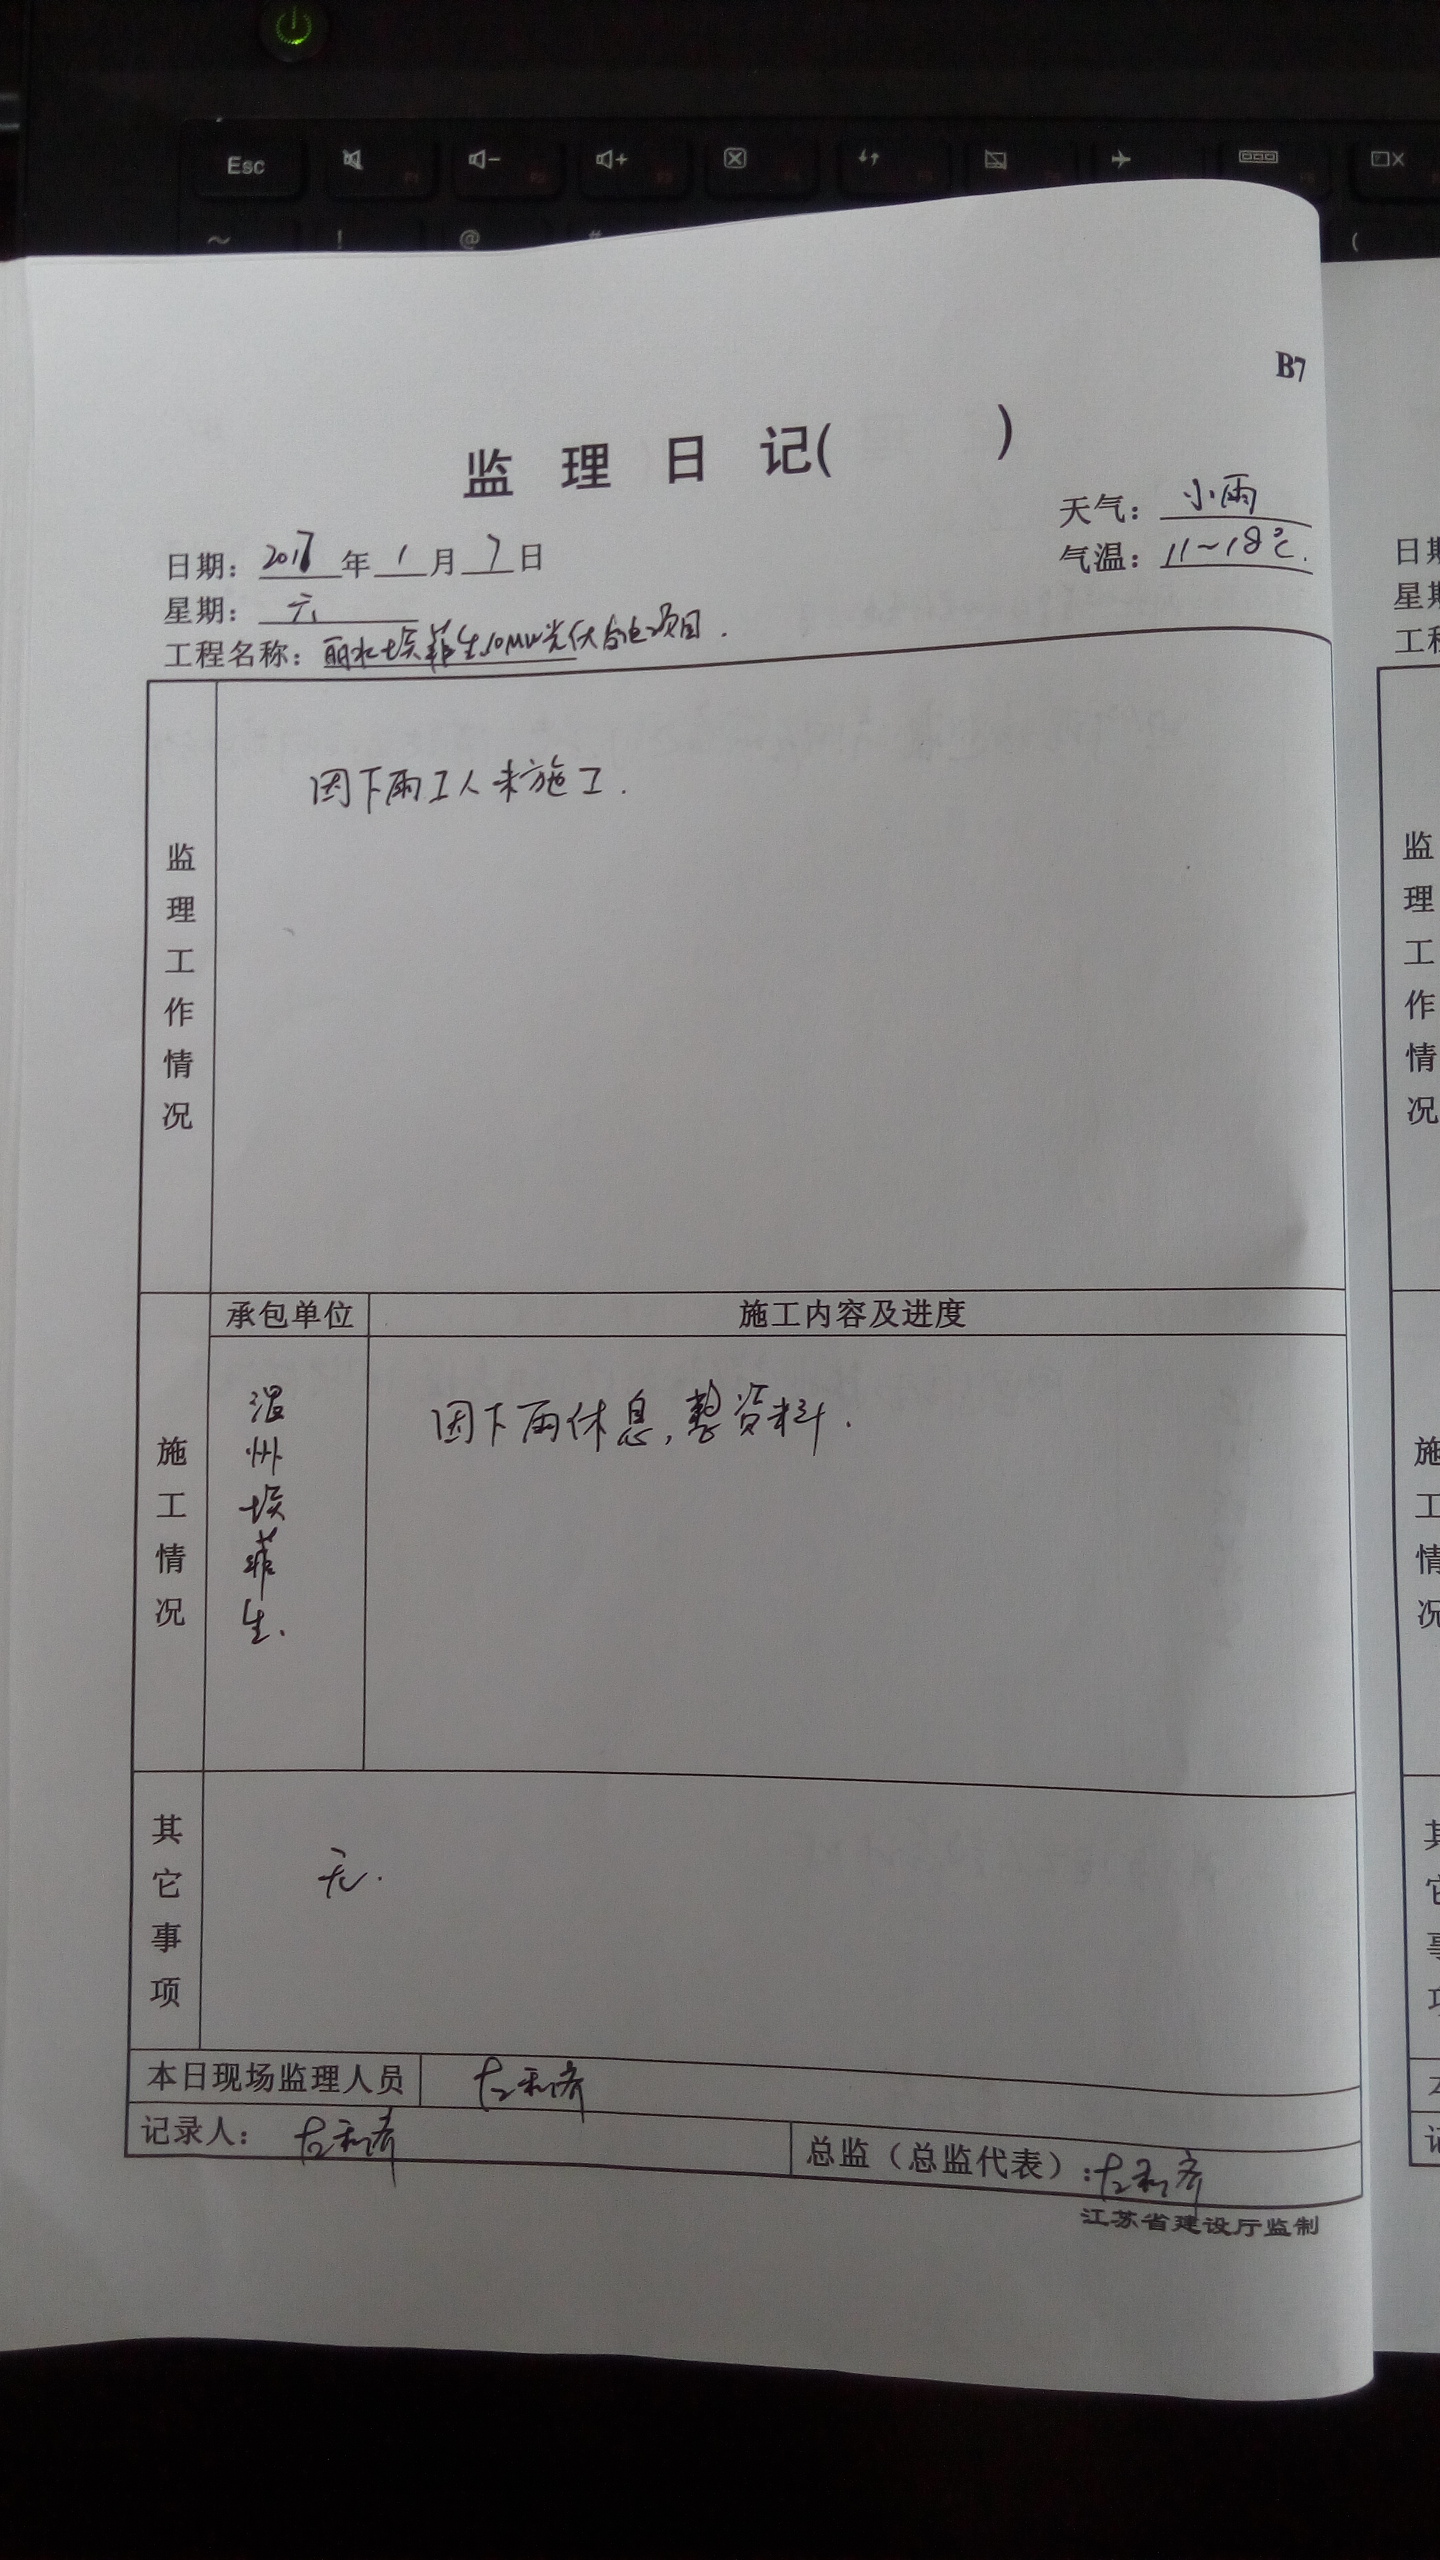 Esc
~ ! @ # (
B7
监理日记( )
天气：小雨
日期：2017年1月7日
气温：11~18℃.
星期：六
工程名称：丽水埃菲生10MW光伏发电项目.
监理工作情况
因下雨工人未施工.
承包单位
施工内容及进度
施工情况
温州埃菲生.
因下雨休息,整资料.
其它事项
无.
本日现场监理人员
记录人：
总监（总监代表）：
江苏省建设厅监制
日期
星期
工程
监理工作情况
施工情况